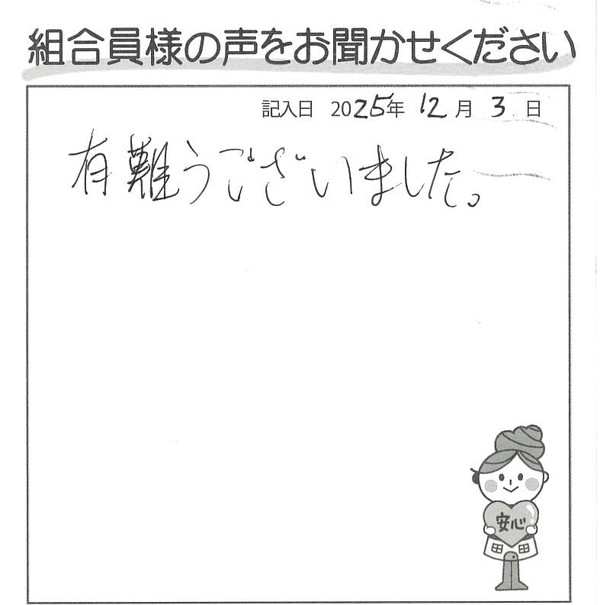 組合員様の声をお聞かせください
記入日 2025年 12月 3日
有難うございました。
安心